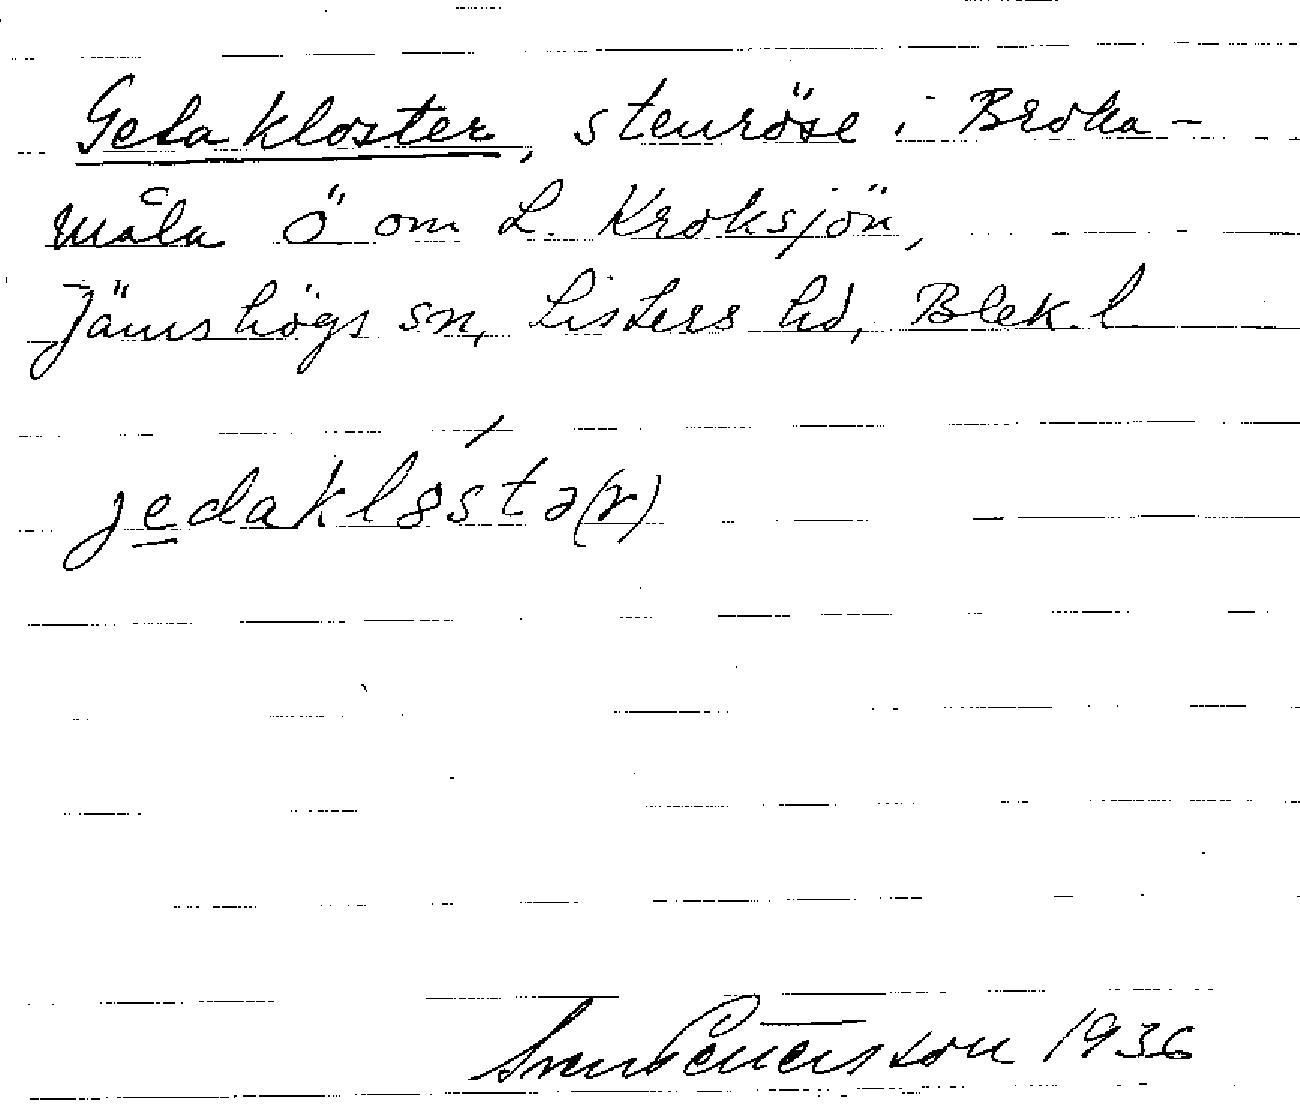 Getakloster, stenröse i Broka-
måla Ö om L. Kroksjön,
Jämshögs sn, Listers hd, Blek. l
jedaklåstə(r)
Sven Benson 1936